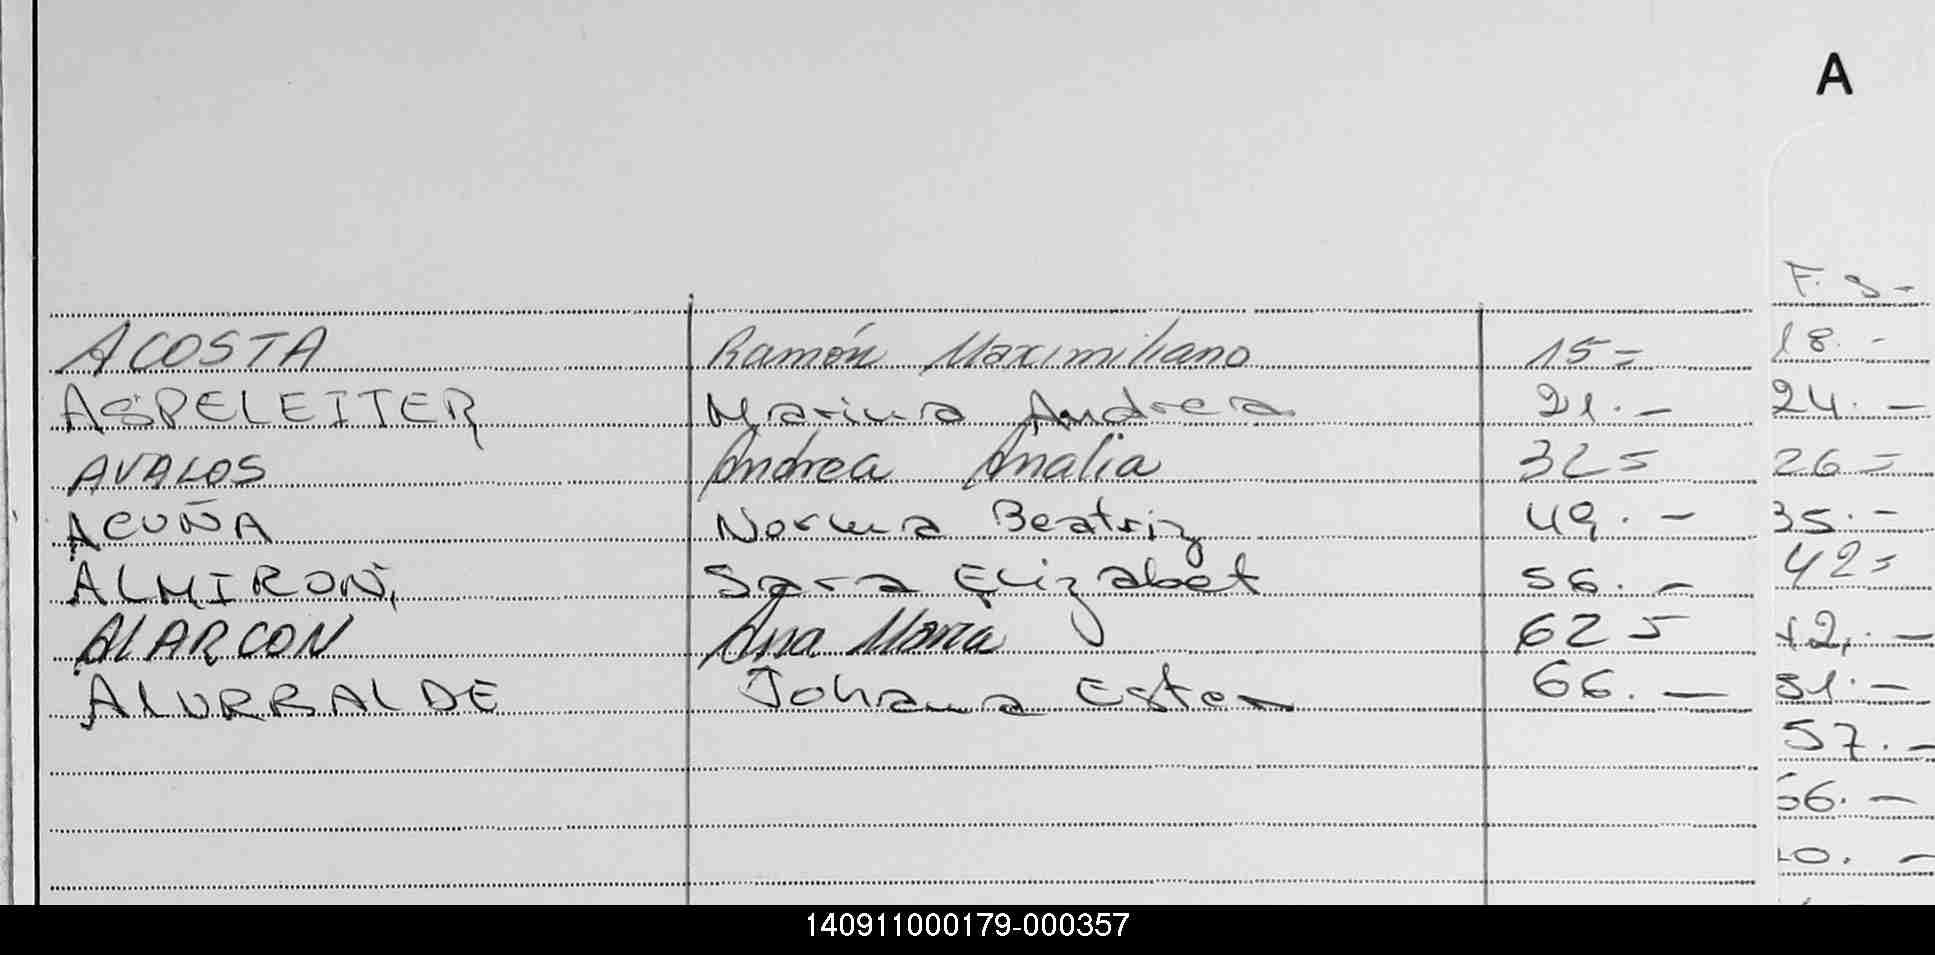 A
F. S-
ACOSTA Ramón Maximiliano 15=
18. -
ASPELEITER Marina Andrea 21. -
24. -
AVALOS Andrea Analia 32=
26=
ACUÑA Norma Beatriz 49. -
35. -
ALMIRON, Sara Elizabet 56. -
42=
ALARCON Ana Maria 62=
ALURRALDE Johana Ester 66. -
51. -
57. -
66. -
140911000179-000357